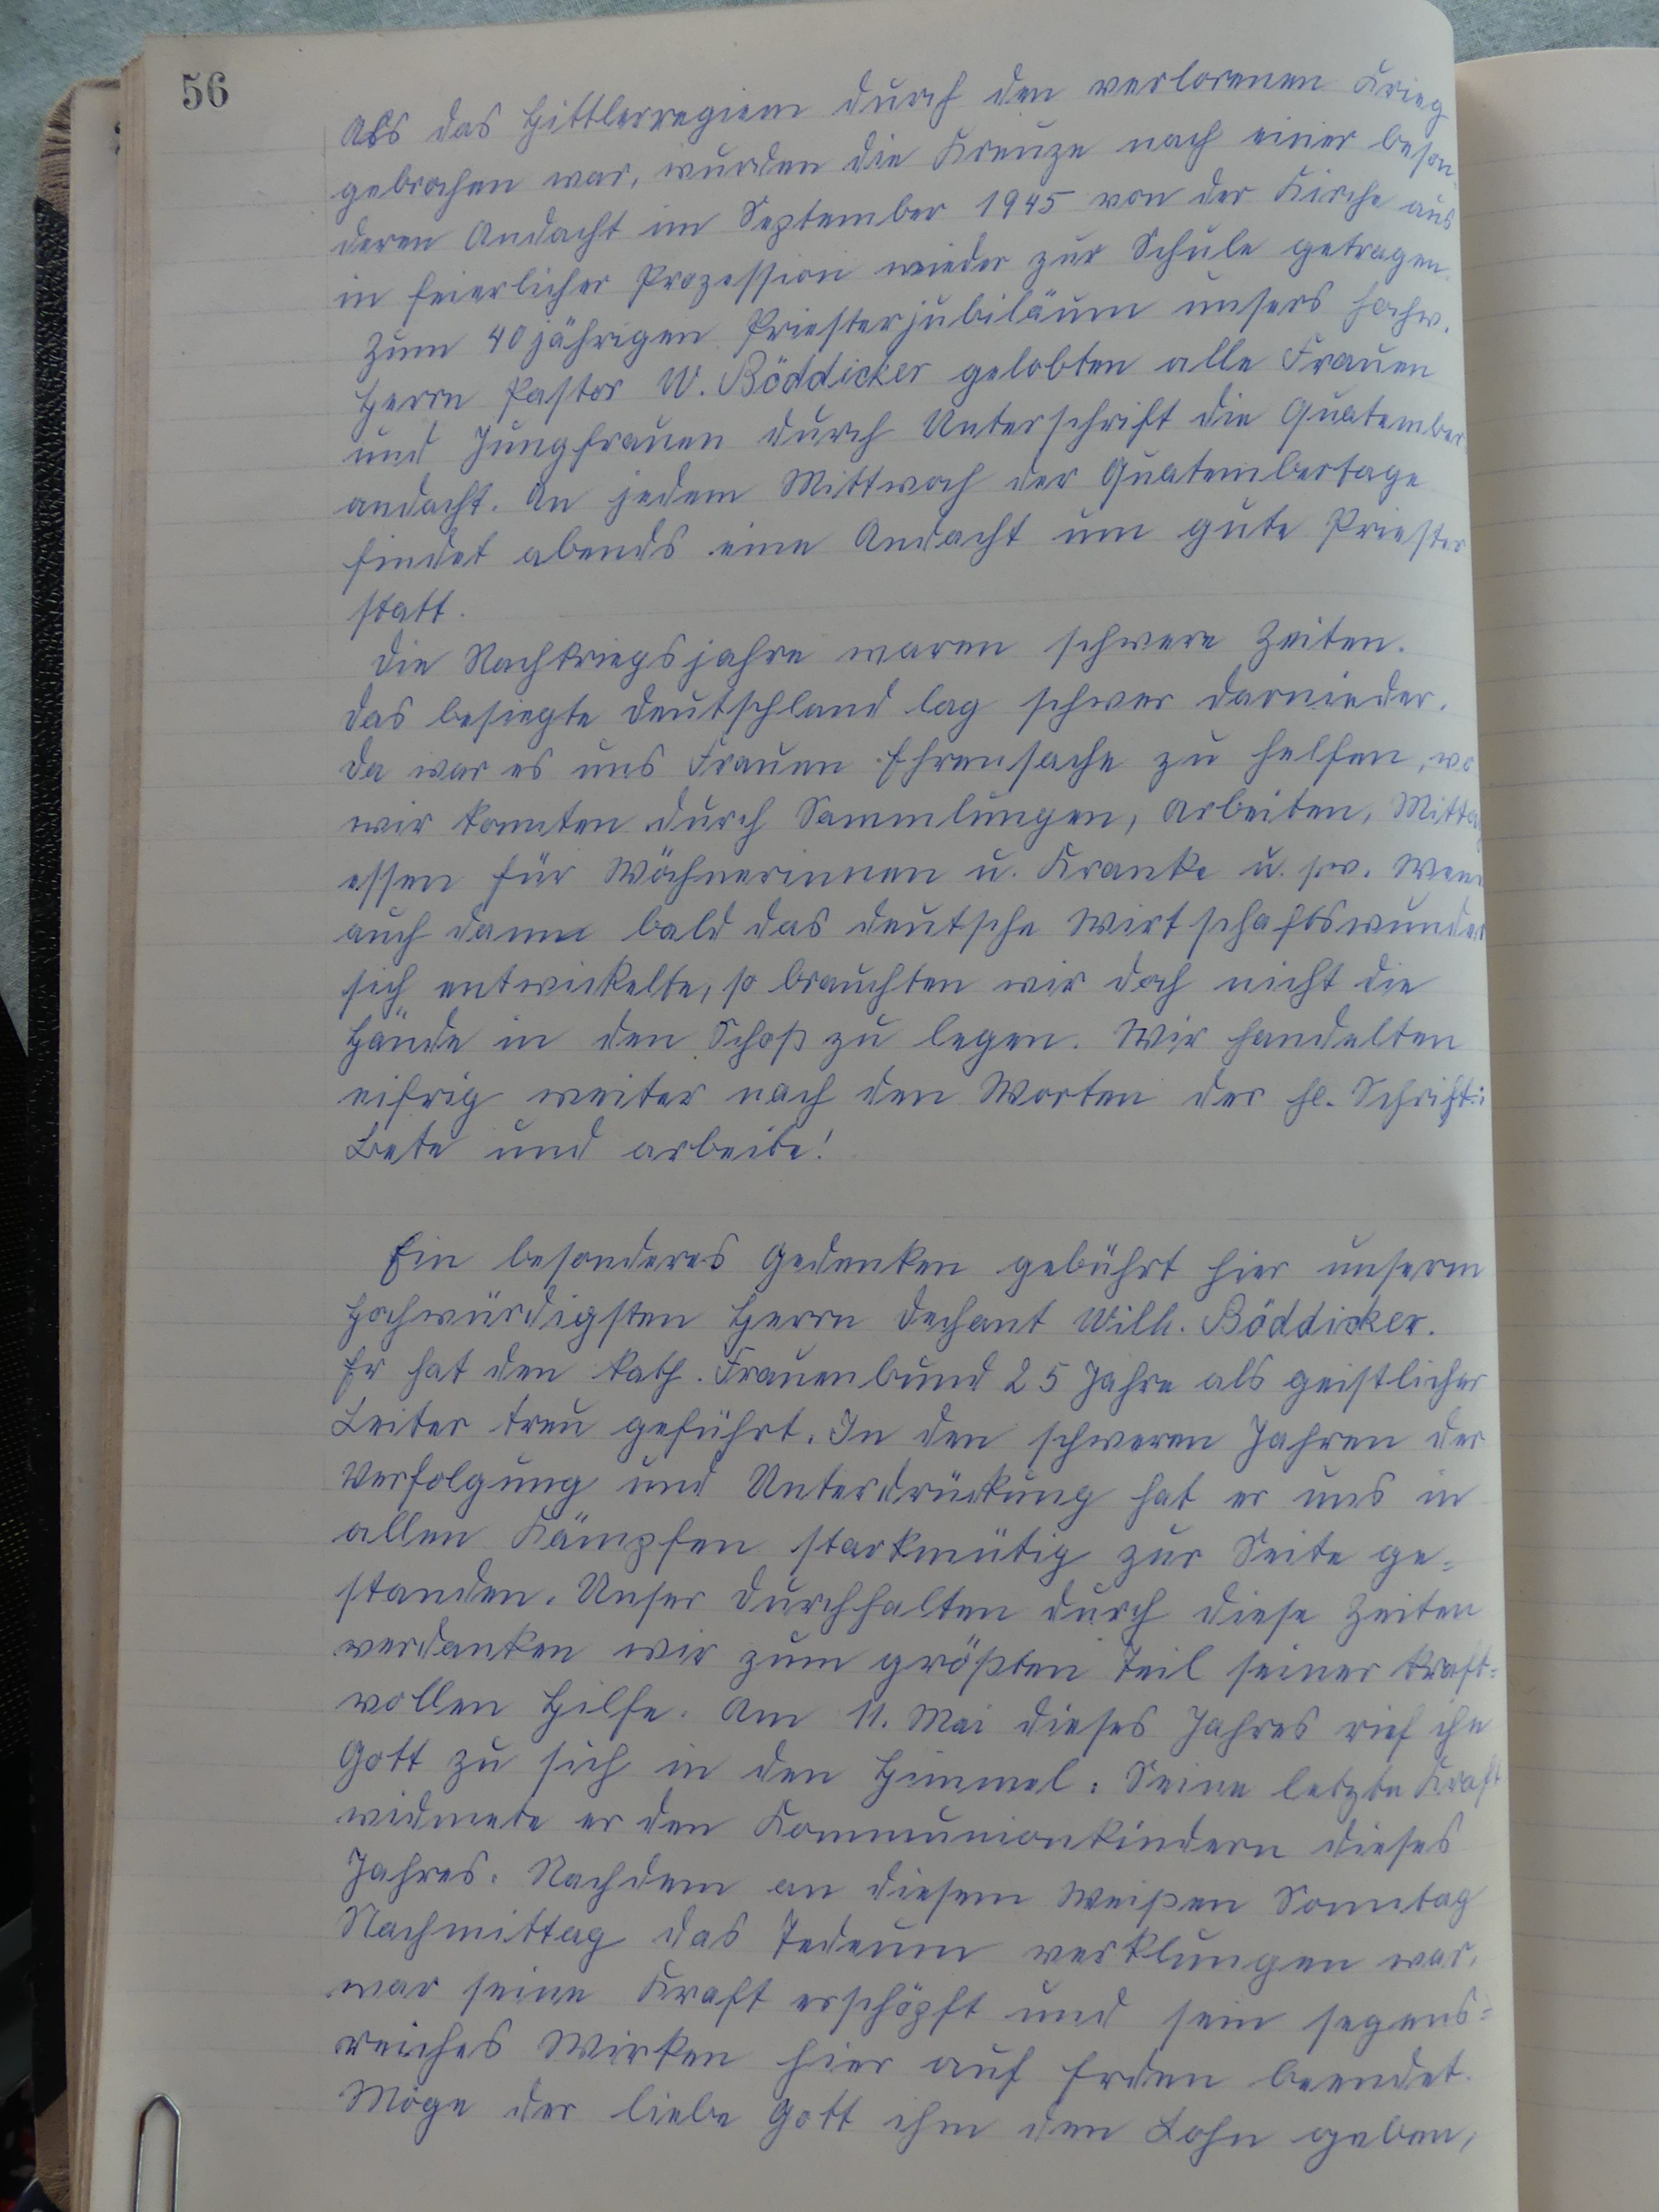 56
Als das Hittlerregiem durch den verlorenen Krieg
gebrochen war, wurden die Kreuze nach einer beson-
deren Andacht im September 1945 von der Kirche aus
in feierlicher Prozession wieder zur Schule getragen.
Zum 40 jährigen Priesterjubiläum unsers hochw.
Herrn Pastor W. Böddicker gelobten alle Frauen
und Jungfrauen durch Unterschrift die Quatember
andacht. An jedem Mittwoch der Quatembertage
findet abends eine Andacht um gute Priester
statt.
Die Nachkriegsjahre waren schwere Zeiten.
Das besiegte Deutschland lag schwer darnieder.
Da war es uns Frauen Ehrensache zu helfen, wo
wir konnten durch Sammlungen, Arbeiten, Mittag
essen für Wöchnerinnen u. Kranke u. sw. Wenn
auch dann bald das deutsche Wirtschaftswunder
sich entwickelte, so brauchten wir doch nicht die
Hände in den Schoß zu legen. Wir handelten
eifrig weiter nach den Worten der hl. Schrift:
Bete und arbeite!
Ein besonderes Gedenken gebührt hier unserm
Hochwürdigsten Herrn Dechant Wilh. Böddicker.
Er hat den kath. Frauenbund 25 Jahre als geistlicher
Leiter treu geführt. In den schweren Jahren der
Verfolgung und Unterdrückung hat er uns in
allen Kämpfen starkmütig zur Seite ge=
standen. Unser Durchhalten durch diese Zeiten
verdanken wir zum größten Teil seiner kraft=
vollen Hilfe. Am 11. Mai dieses Jahres rief ihn
Gott zu sich in den Himmel. Seine letzte Kraft
widmete er den Kommunionkindern dieses
Jahres. Nachdem an diesem Weißen Sonntag
Nachmittag das Tedeum verklungen war,
war seine Kraft erschöpft und sein segens=
reiches Wirken hier auf Erden beendet.
Möge der liebe Gott ihm den Lohn geben,